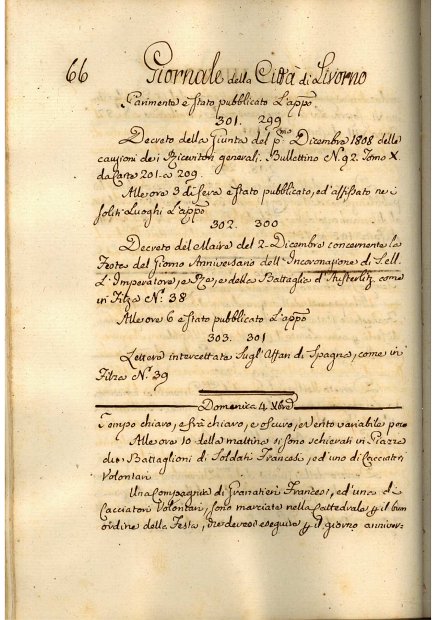 66 Giornale della Città di Livorno
Parimente è stato pubblicato l'app.º
301. 299
Decreto della Giunta del p.mo Dicembre 1808 delle
cauzioni dei Ricevitori generali. Bullettino N. 92. Tomo X.
da Carte 201. a 209.
Alle ore 3 di sera è stato pubblicato, ed affissato nei
soliti Luoghi l'app.º
302. 300
Decreto del Maire del 2. Dicembre concernente la
Festa del Giorno Anniversario dell'Incoronazione di S.ell.
L'Imperatore, e Re, e della Battaglia d'Austerlitz. come
in Filza N.º 38
Alle ore 6 è stato pubblicato l'app.º
303. 301
Lettere intercettate sugl'Affari di Spagna, come in
Filza N.º 39
Domenica 4. Xbre
Tempo chiaro, e frà chiaro, e oscuro, e Vento variabile poco
Alle ore 10 della mattina si sono schierati in Piazza
due Battaglioni di Soldati Francesi, ed uno di Cacciatori
Volontari
Una Compagnia di Granatieri Francesi, ed una di
Cacciatori Volontari, sono marciate nella Cattedrale p il buon
ordine della Festa, che devesi eseguire p il giorno anniver-